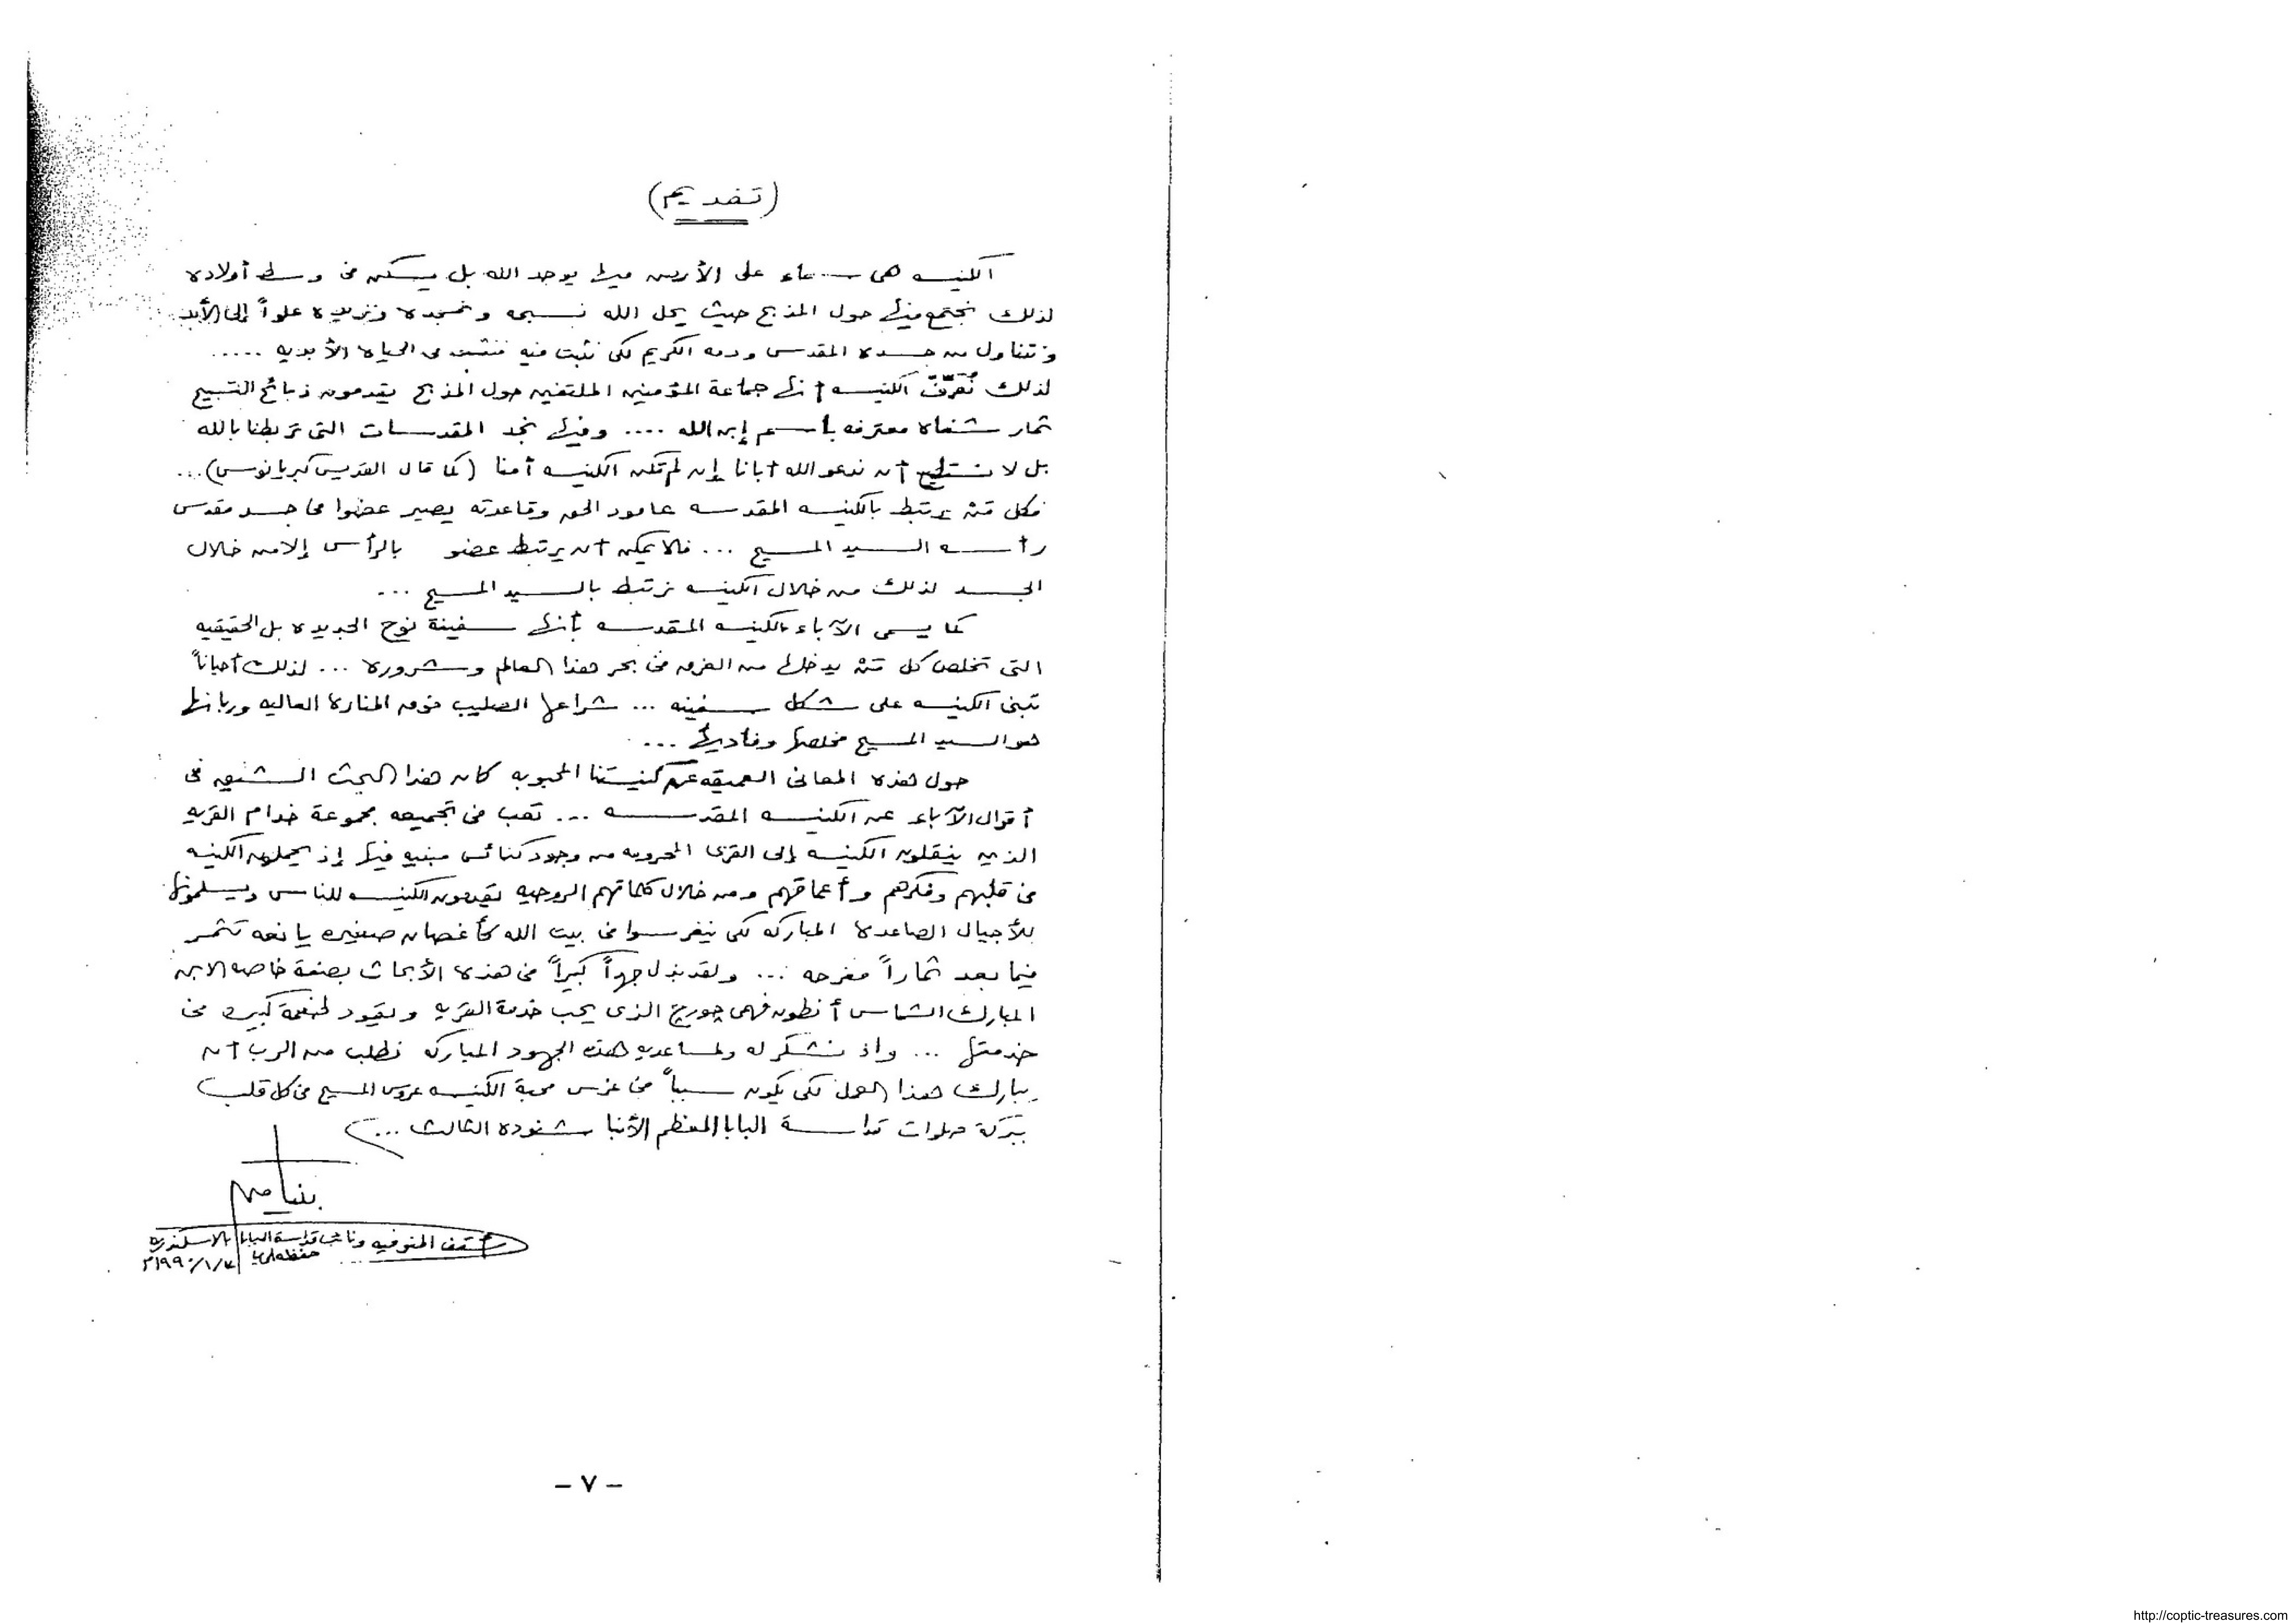 (تقديم)
الكنيسه هى سماء على الأرض فيها يوجد الله بل يسكن فى وسط أولاده
لذلك نجتمع فيها حول المذبح حيث يحل الله نسبحه ونمجده ونزيده علواً إلى الأبد
ونتناول من جسده المقدس ودمه الكريم لكى نثبت فيه فنثبت فى الحياه الأبديه .....
لذلك نُعَرِّفّ الكنيسه أنها جماعة المؤمنين الملتفين حول المذبح يقدمون ذبائح التسبيح
ثمار شفاه معترفه بأسم إبن الله .... وفيها نجد المقدسات التى تربطنا بالله
بل لا نستطيع أن ندعو الله أبانا إن لم تكن الكنيسه أمنا (كما قال القديس كبريانوس)...
فكل مَنْ يرتبط بالكنيسه المقدسه عامود الحق وقاعدته يصير عضوا فى جسد مقدس
رأسه السيد المسيح ... فلا يمكن أن يرتبط عضو بالرأس إلا من خلال
الجسد لذلك من خلال الكنيسه نرتبط بالسيد المسيح ...
كما يسمى الآباء الكنيسه المقدسه بأنها سفينة نوح الجديده بل الحقيقيه
التى تخلص كل مَنْ يدخلها من الغرق فى بحر هذا العالم وشروره ... لذلك أحياناً
تبنى الكنيسه على شكل سفينه ... شراعها الصليب فوق المناره العاليه وربانها
هو السيد المسيح مخلصها وفاديها ...
حول هذه المعانى العميقه عن كنيستنا المحبوبه كان هذا البحث الشيق فى
أقوال الآباء عن الكنيسه المقدسه ... تعب فى تجميعه مجموعة خدام القريه
الذين ينقلون الكنيسه إلى القرى المحرومه من وجود كنائس مبنيه فيها إذ يحملون الكنيسه
فى قلبهم وفكرهم وأعماقهم ومن خلال كلماتهم الروحيه يقدمون الكنيسه للناس ويسلمونها
للأجيال الصاعده المباركه لكى ينغرسوا فى بيت الله كأغصان صغيره يانعه تثمر
فيما بعد ثماراً مفرحه ... ولقد بذل جهداً كبيراً فى هذه الأبحاث بصفة خاصه الابن
المبارك الشماس أنطون فهمى جورج الذى يحب خدمة القريه ويقود كبيره فى
خدمتها ... واذ نشكر له ولمساعديه هذه الجهود المباركه نطلب من الرب أن
يبارك هذا العمل لكى يكون سبباً فى غرس محبة الكنيسه عروس المسيح فى كل قلب
ببركة صلوات قداسة البابا المعظم الأنبا شنوده الثالث ...
بنيامين
أسقف المنوفيه ونائب قداسة البابا بالاسكندريه
– ٧ –
http://coptic-treasures.com